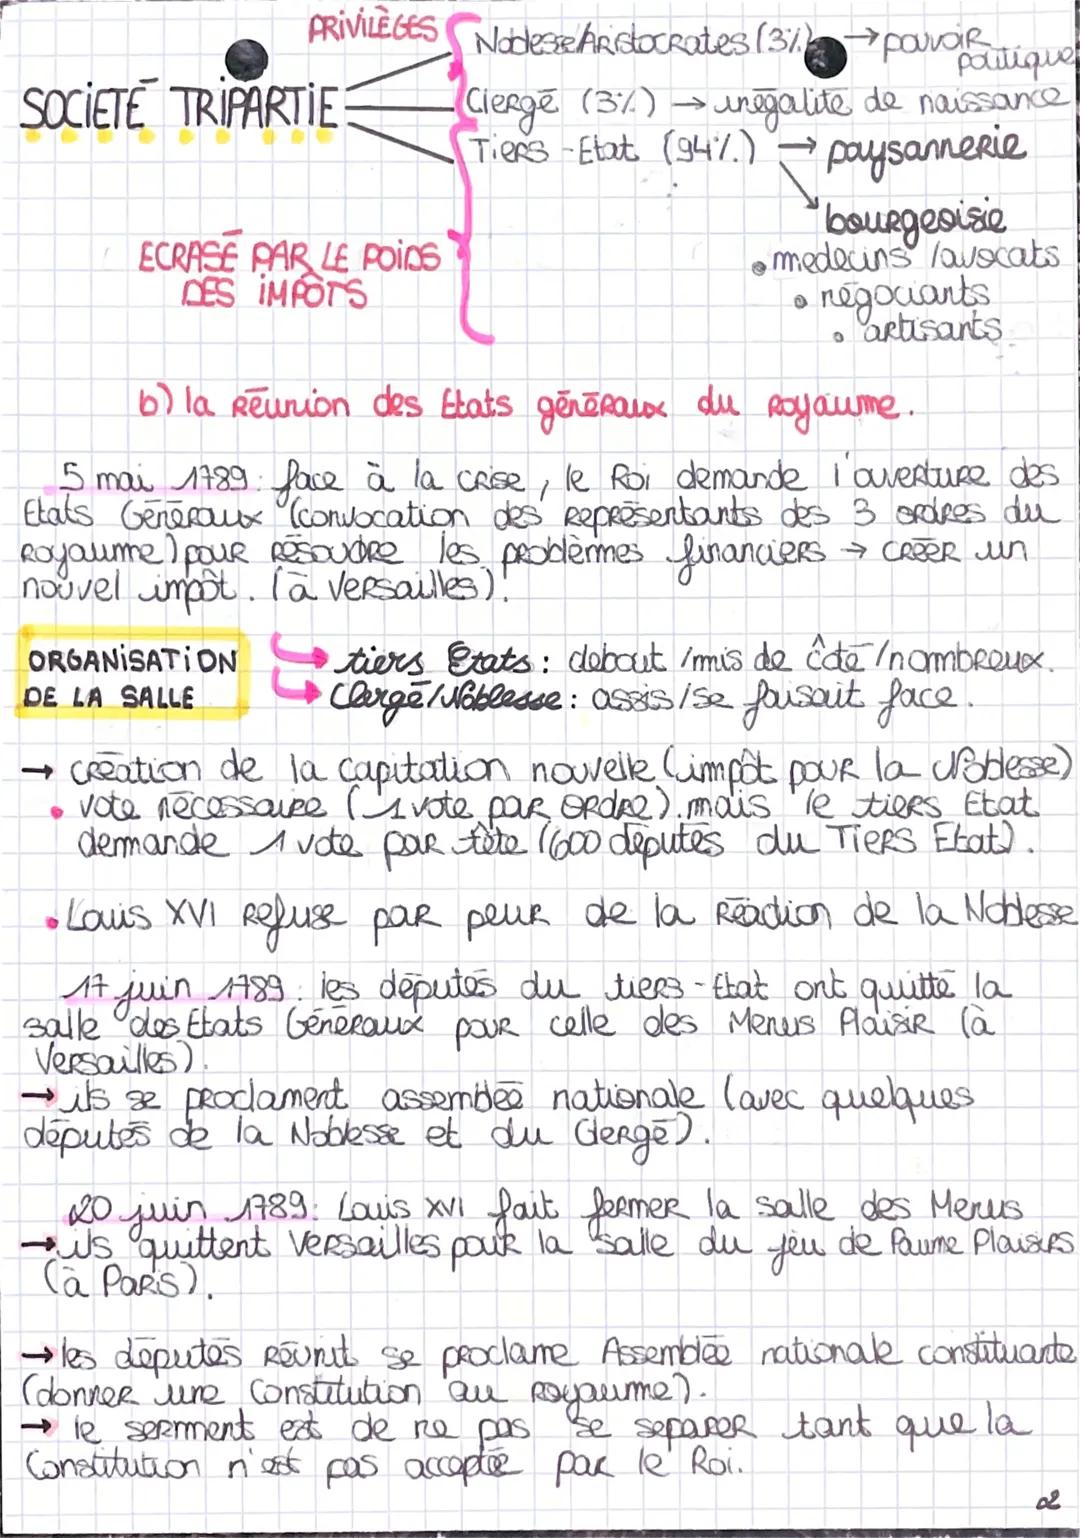 PRIVILÈGES
Noblesse/Aristocrates (3%) → pouvoir politique
SOCIETÉ TRIPARTIE
Clergé (3%) → inégalité de naissance
Tiers-Etat (94%) → paysannerie
bourgeoisie
• medecins /avocats
• négociants
• artisants
ECRASÉ PAR LE POIDS
DES IMPÔTS
b) la réunion des Etats généraux du royaume.
5 mai 1789: face à la crise, le Roi demande l'ouverture des
Etats Généraux (convocation des représentants des 3 ordres du
royaume) pour résoudre les problèmes financiers → créer un
nouvel impôt. (à Versailles).
ORGANISATION
DE LA SALLE
tiers Etats: debout /mis de côté /nombreux.
Clergé/Noblesse: assis/se faisait face.
→ création de la capitation nouvelle (impôt pour la Noblesse)
• vote nécessaire (1 vote par ordre). mais le tiers Etat
demande 1 vote par tête (600 députés du Tiers Etat).
• Louis XVI refuse par peur de la réaction de la Noblesse
17 juin 1789: les députés du tiers-Etat ont quitté la
salle des Etats Généraux pour celle des Menus Plaisir (à
Versailles).
→ ils se proclament assemblée nationale (avec quelques
députés de la Noblesse et du Clergé).
20 juin 1789: Louis XVI fait fermer la salle des Menus
→ ils quittent Versailles pour la salle du jeu de Paume Plaisirs
(à Paris).
→ les députés réunit se proclame Assemblée nationale constituante
(donner une Constitution au royaume).
→ le serment est de ne pas se séparer tant que la
Constitution n'est pas acceptée par le Roi.
02